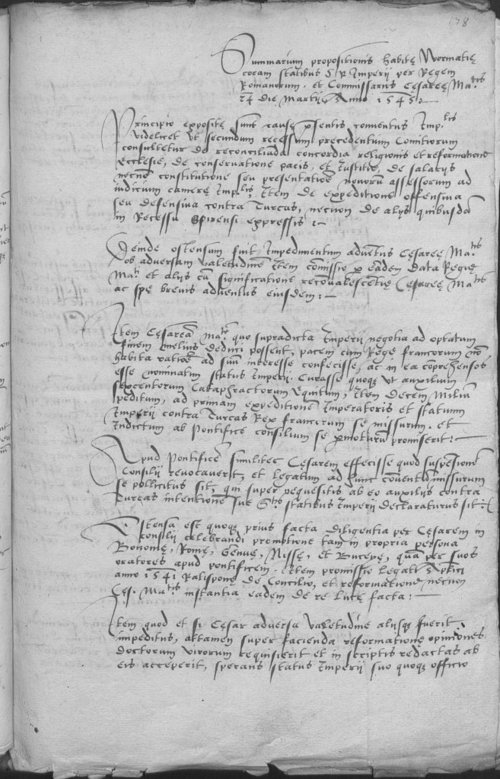 178
Summarium propositionis habitę Wormatię
coram statibus S. R. Imperii per Regem
Romanorum et Commissarios Cesareę Ma.tis
24 die Martii Anno 1545:~
Principio expositę sunt causę pręsentis conventus Imp.lis
videlicet ut secundum recessum precedentium Comitiorum
consultetur de reconcilianda concordia religionis et reformatione
Ecclesię, de conservatione pacis, et Justitię, de salariis
necnon constitutione seu presentatione novorum assessorum ad
iudicium camerę Imp.lis Item de expeditione offensiva
seu defensiva contra Turcas, necnon de aliis quibusdā
in Recessu Spirensi expressis:~
Deinde ostensum fuit Impedimentum adventus Cesareę Ma.tis
ob adversam valetudinem Item comissio p eadem data Regię
Ma.ti et aliis cū significatione reconvalescentię Cesareę Ma.tis
ac spe brevis adventus eiusdem:~
Item Cęsareā Ma.tē quo supradicta Imperii negotia ad optatum
finem melius deduci possent, pacem cum Rege francorum nō
habita ratione ad suum interesse confecisse, ac in ea coprehensos
esse nominatim status Imperii. Curasse quoque ut auxilium
sexcentorum Cataphractorum Equitum, Item Decem Milium
peditum, ad primam expeditionem Imperatoris et statuum
Imperii contra Turcas Rex francorum se missurum, et
Indictum ab Pontifice consilium se pmoturū promiserit:~
Apud Pontificem similiter Cęsarem effecisse quod suspensionē
Consilii revocaverit, et legatum ad hunc coventū missurum
se pollicitus sit, qui super pequesitis ab eo auxiliis contra
Turcas intentionē suę S.tis statibus Imperii declaraturus sit:~
Ostensa est quoque prius facta diligentia per Cęsarem in
consilii celebrandi promptione tam in propria persona
Bononię, Romę, Genuę, Nissę, et Buceyę, quā per suos
oratores apud pontificem. Item promissio legati S. ptificis
anno 1541 Ratisponę de Concilio, et reformatione necnon
Cęs. Ma.tis instantia eadem de re Lucę facta:~
Item quod et si Cęsar adversa valetudine aliisque fuerit
impeditus, attamen super facienda reformatione opiniones
doctorum virorum requisierit et in scriptis redactas ab
eis acceperit, sperans status Imperii suo quoque officio